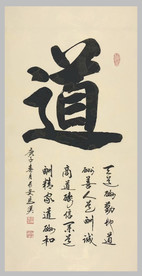 道
天道酬勤地道
酬善人道酬誠
商道酬信業道
酬精家道酬和
庚子春月